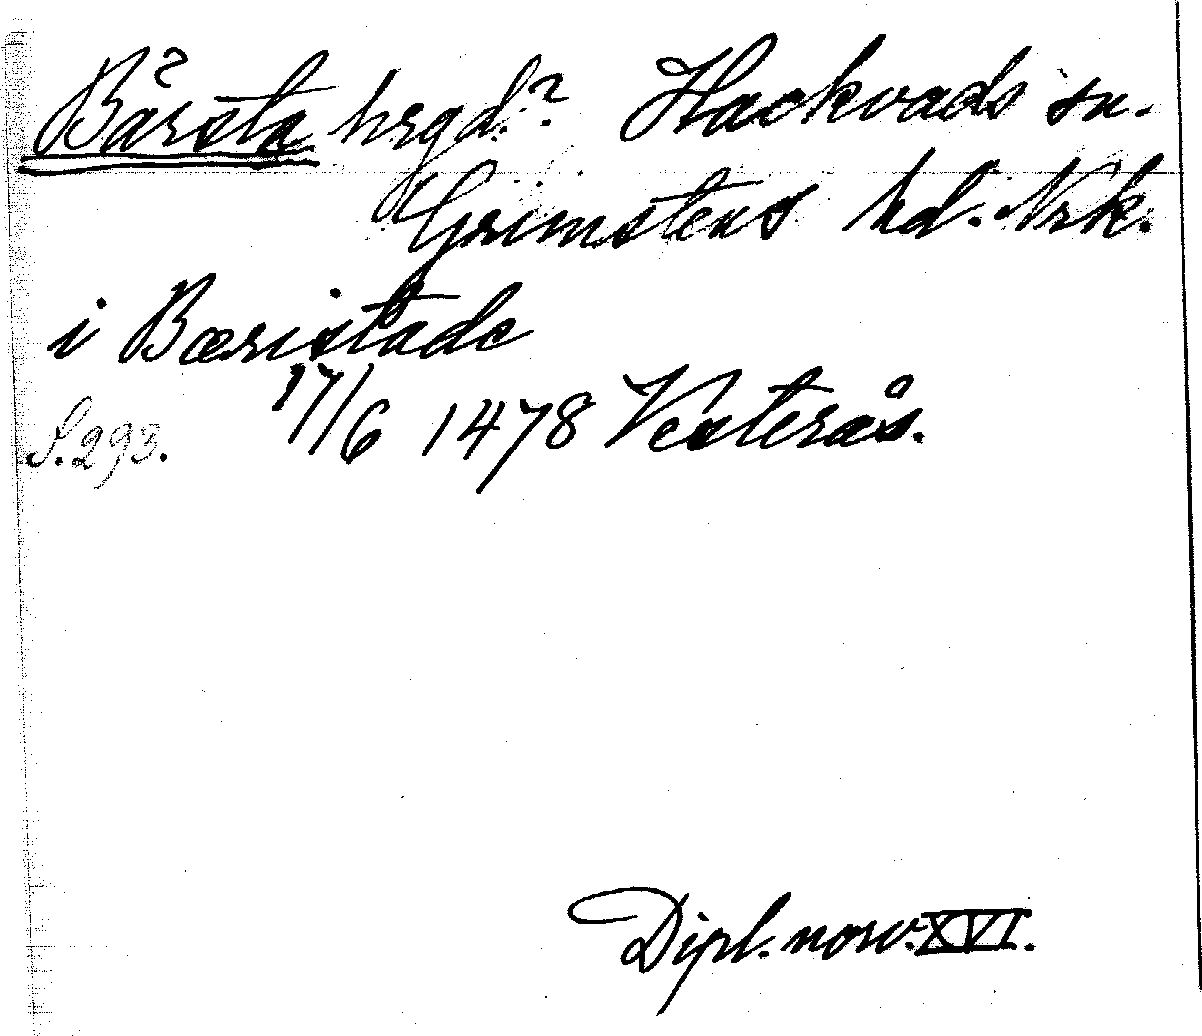 Bärsta hrgd.? Hackvads sn.
Grimstens hd. Nrk.
i Bæristade
17/6 1478 Vesteraås.
S. 293.
Dipl. norv. XVI.